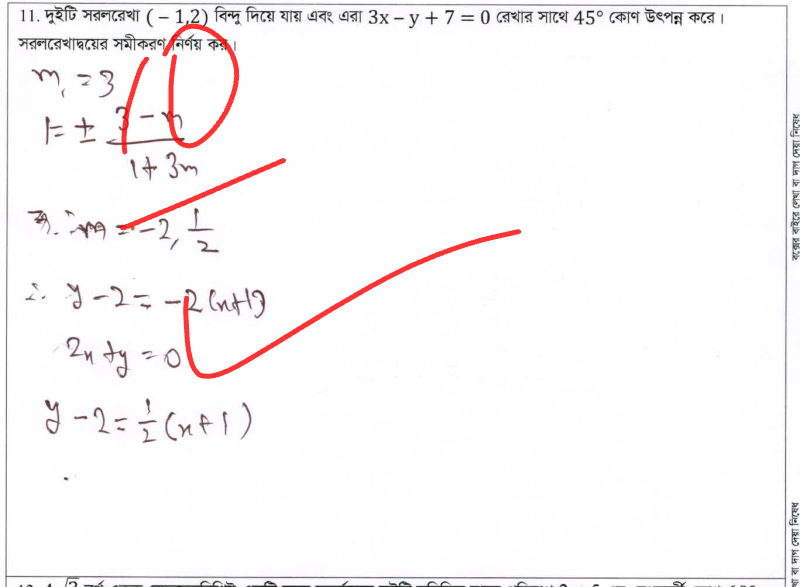 11. দুইটি সরলরেখা ( – 1,2) বিন্দু দিয়ে যায় এবং এরা 3x – y + 7 = 0 রেখার সাথে 45° কোণ উৎপন্ন করে।
সরলরেখাদ্বয়ের সমীকরণ নির্ণয় কর।
m₁ = 3
1 = ± (3 - m)/(1 + 3m)
∴ m = -2, 1/2
∴ y - 2 = -2(x+1)
2x + y = 0
y - 2 = 1/2 (x + 1)
বক্সের বাইরে লেখা বা দাগ দেয়া নিষেধ
বা দাগ দেয়া নিষেধ